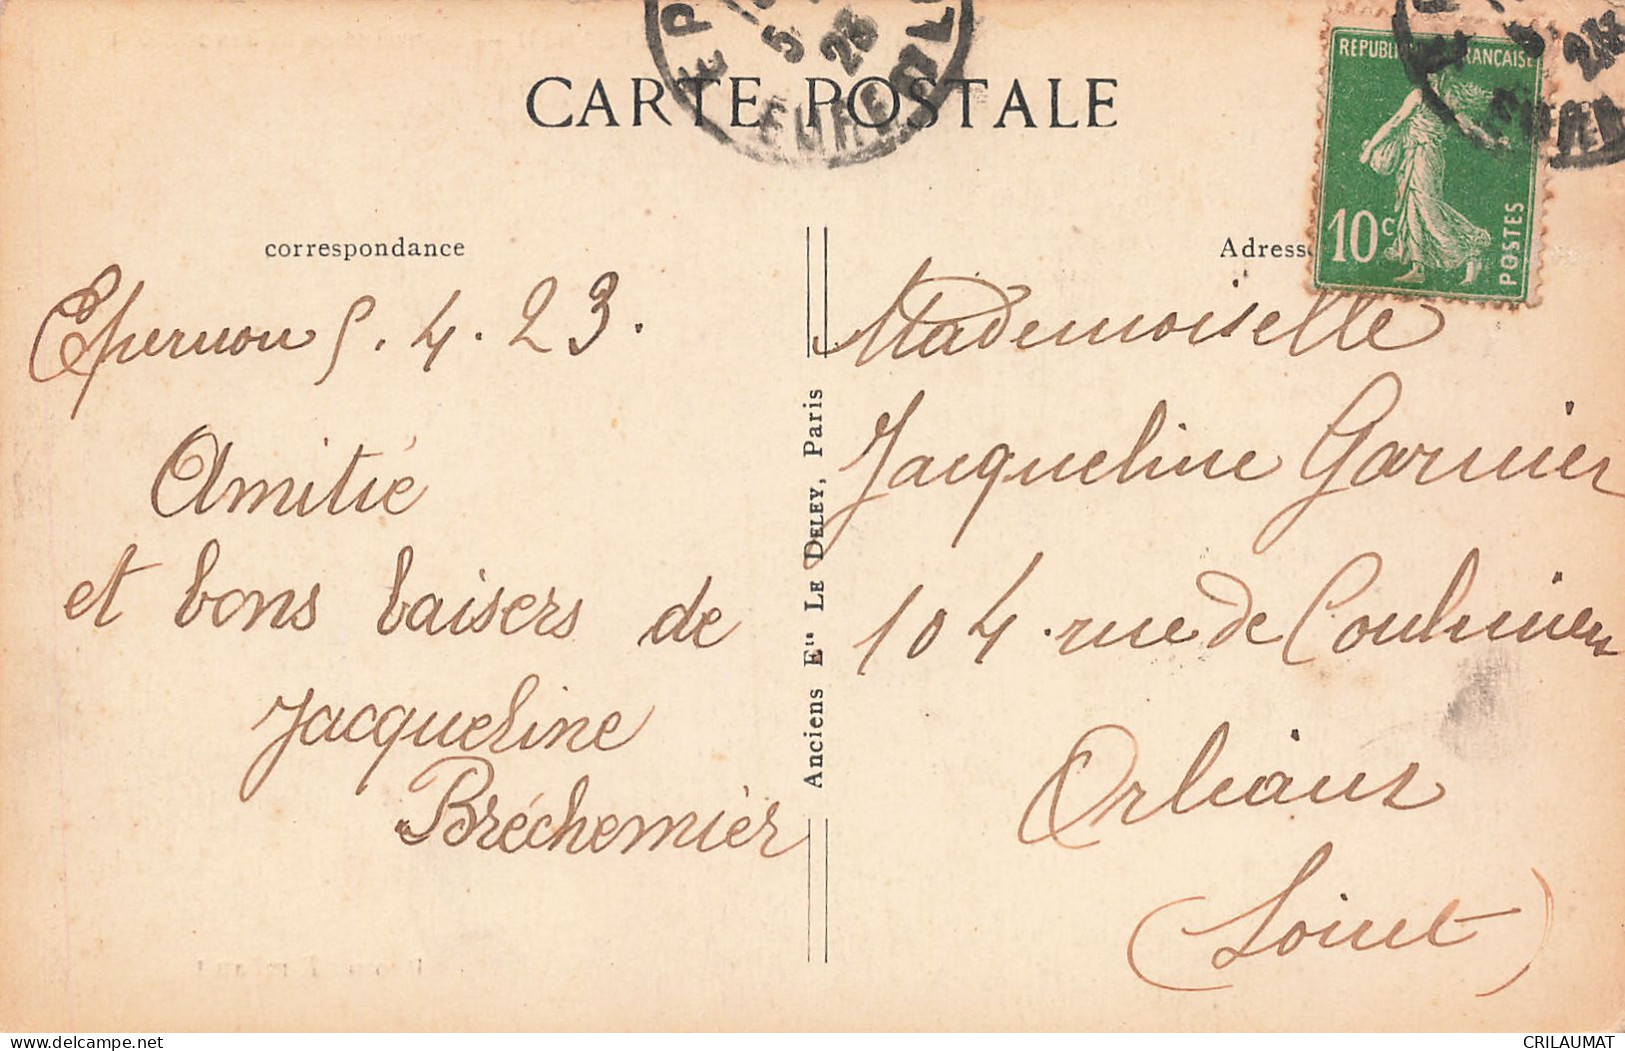 CARTE POSTALE
REPUBLIQUE FRANÇAISE
10c
POSTES
5 23
EURE
correspondance
Epernon 5.4.23.
Amitié
et bons baisers de
Jacqueline
Bréchemier
Anciens Etts LE DELEY, Paris
Adresse
Mademoiselle
Jacqueline Garnier
104 rue de Coulmiers
Orléans
(Loiret)
delcampe.net
CRILAUMAT